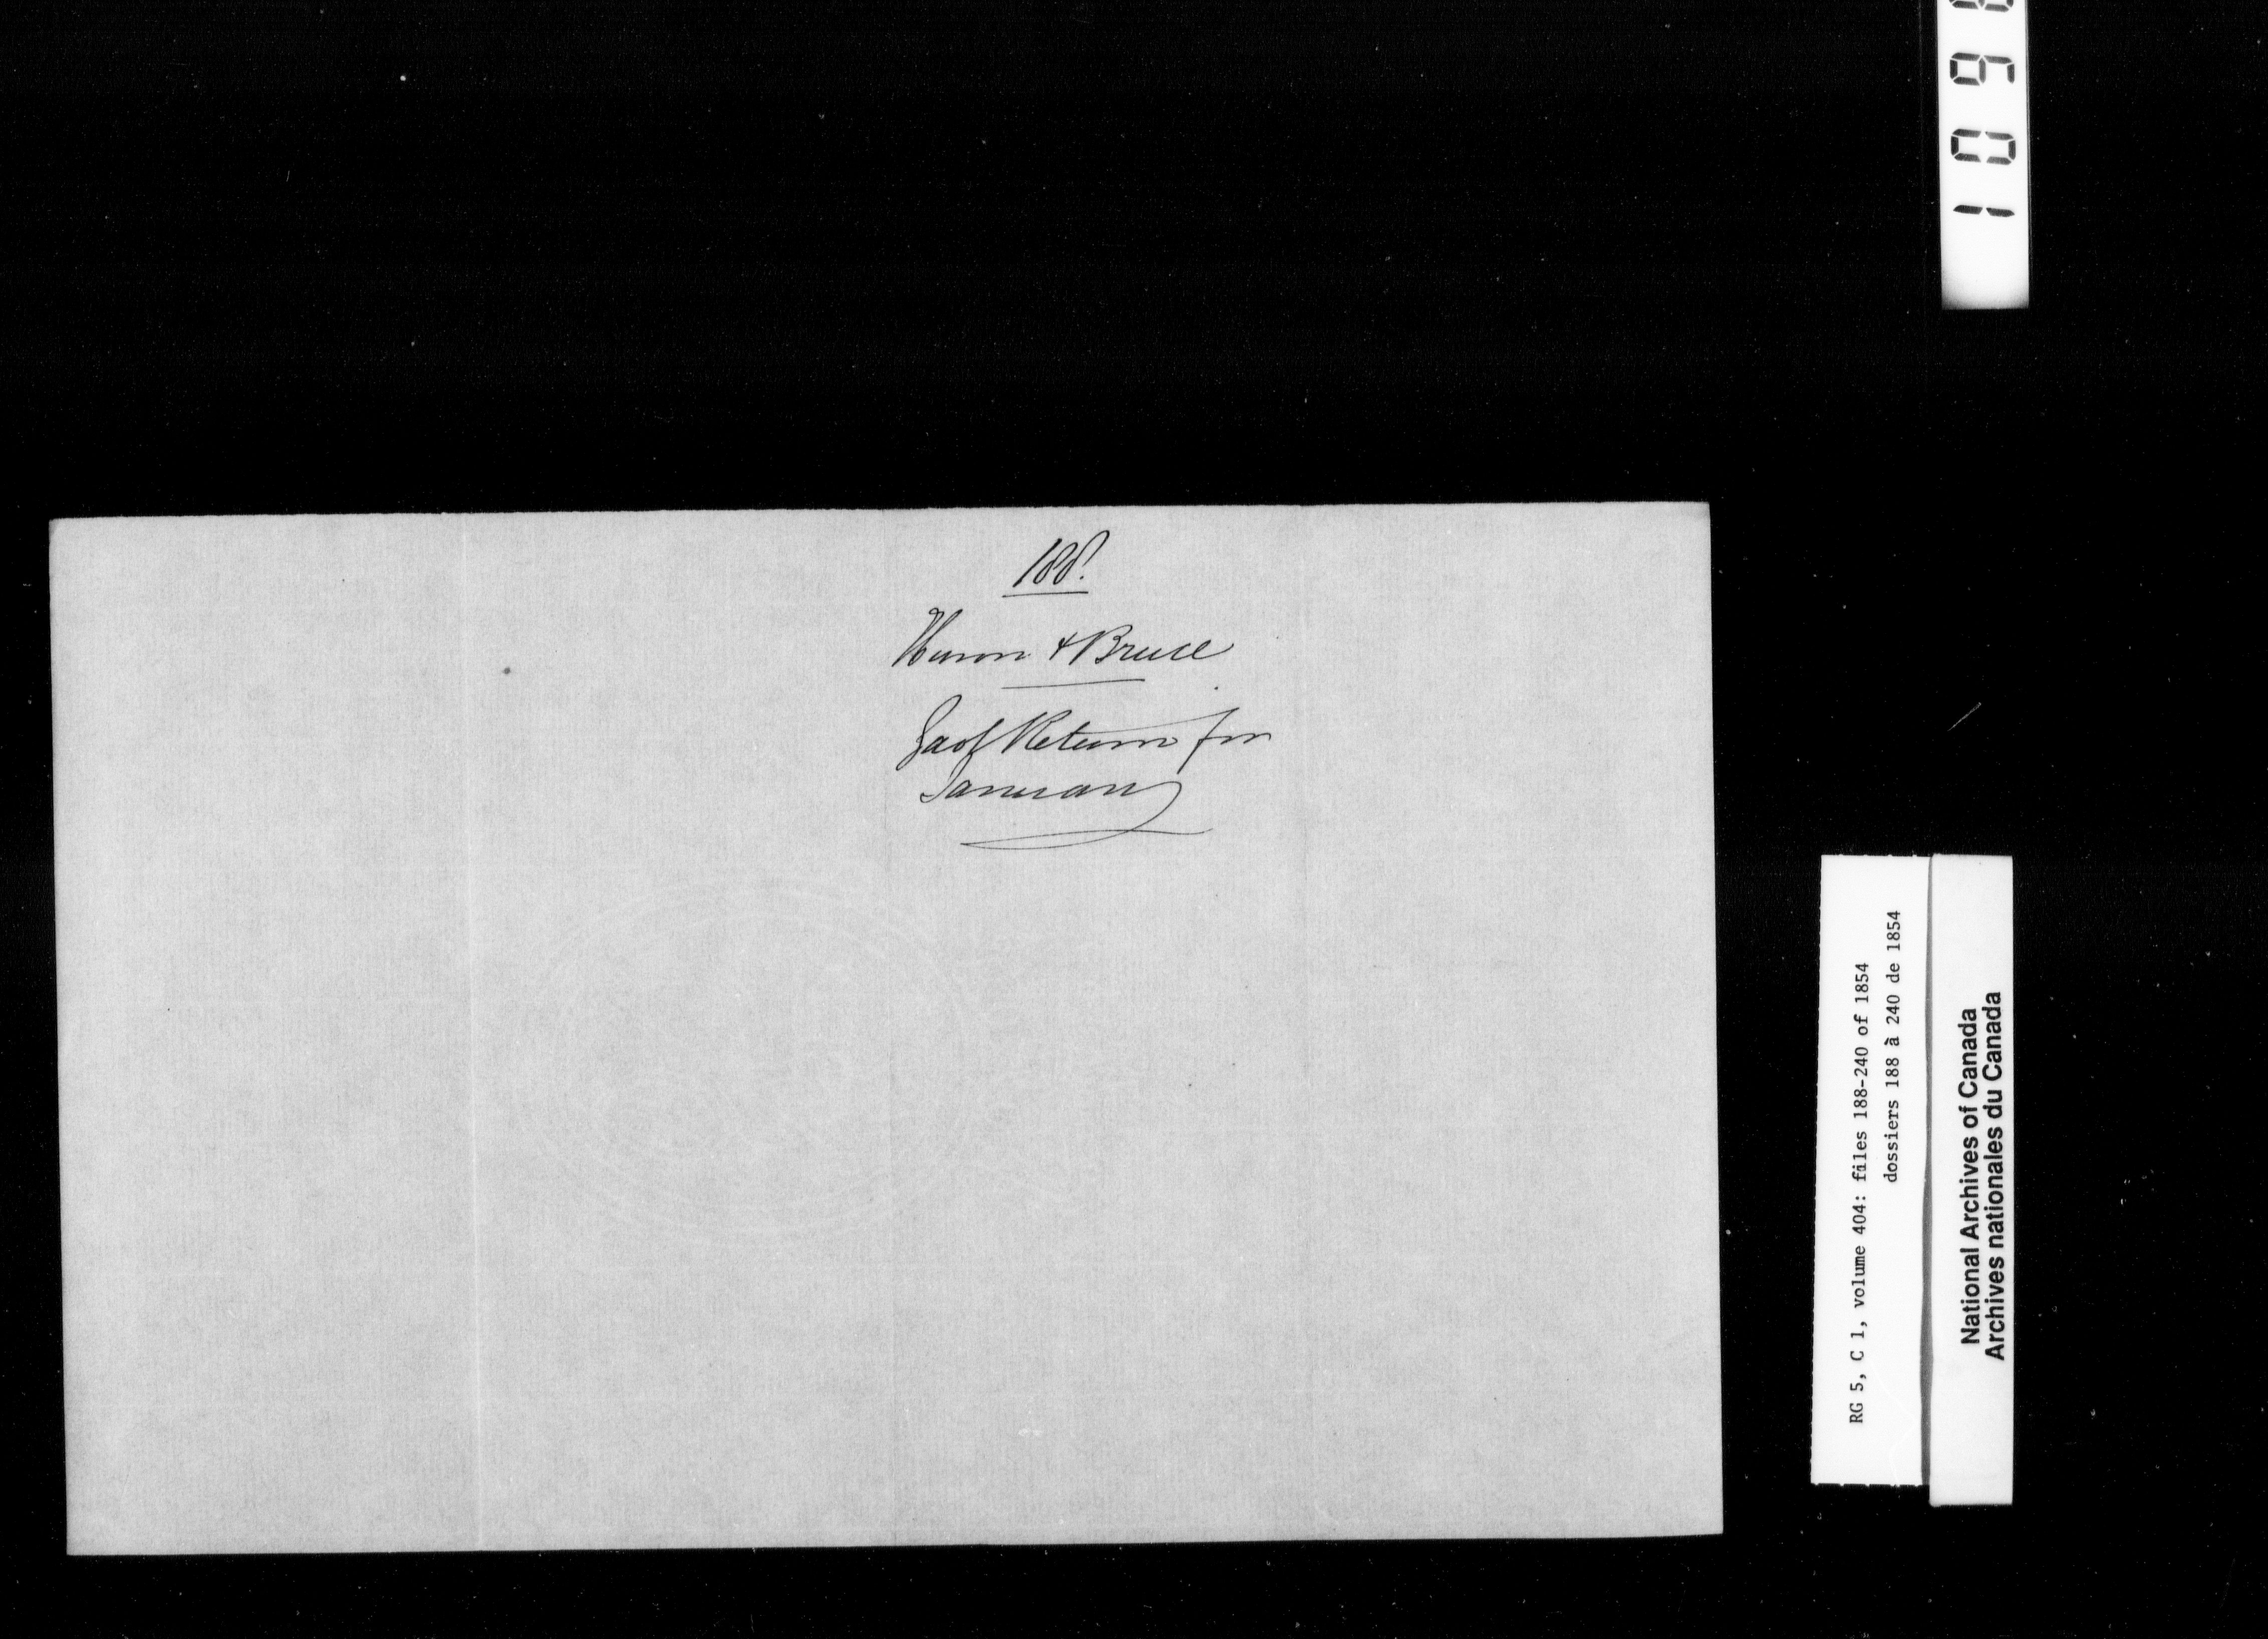 188.
Huron & Bruce
Gaol Return for
January
RG 5, C 1, volume 404: files 188-240 of 1854
dossiers 188 à 240 de 1854
National Archives of Canada
Archives nationales du Canada
109